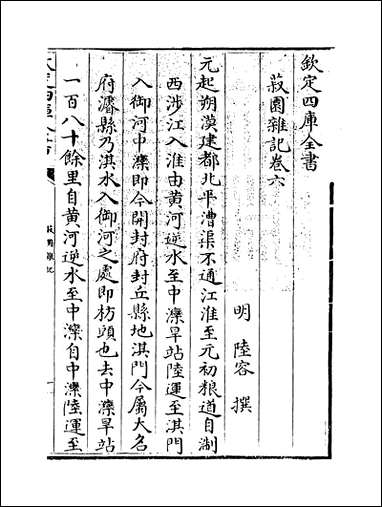 欽定四庫全書
菽園雜記卷六
明 陸容 撰
元起朔漠建都北平漕渠不通江淮至元初粮道自浙
西涉江入淮由黄河逆水至中灤旱站陸運至淇門
入御河中灤即今開封府封丘縣地淇門今屬大名
府濬縣乃淇水入御河之處即枋頭也去中灤旱站
一百八十餘里自黄河逆水至中灤自中灤陸運至
菽園雜記